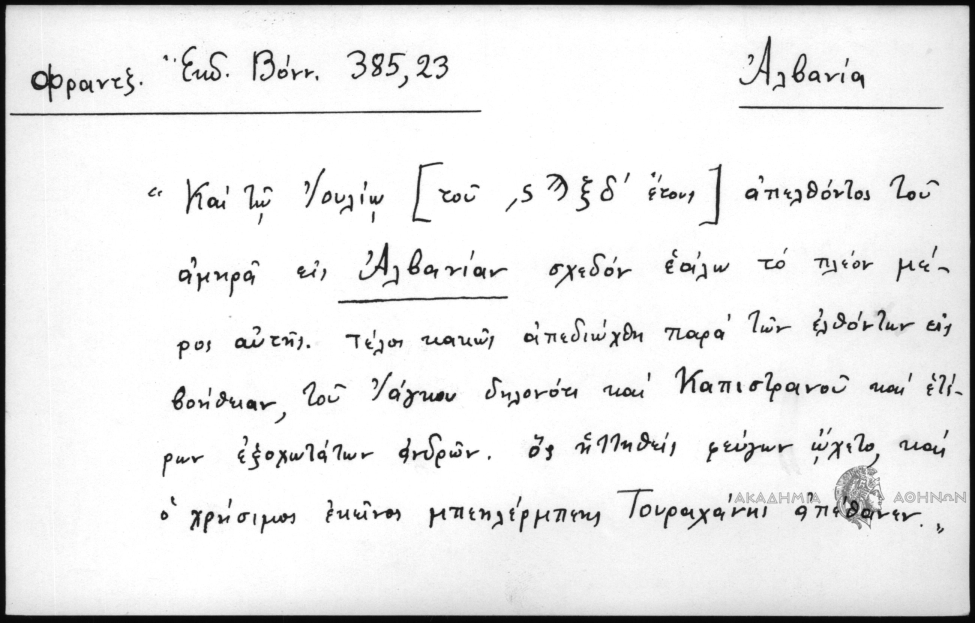 Φραντζ. Ἔκδ. Βόνν. 385,23
Ἀλβανία
"Καί τῷ Ἰουλίῳ [τοῦ ͵ςϠξδ´ ἔτους] ἀπελθόντος τοῦ
ἀμηρᾶ εἰς Ἀλβανίαν σχεδόν ἑάλω τό πλέον μέ-
ρος αὐτῆς. τέλος κακῶς ἀπεδιώχθη παρά τῶν ἐλθόντων εἰς
βοήθειαν, τοῦ Ἰάγκου δηλονότι καί Καπιστρανοῦ καί ἑτέ-
ρων ἐξοχωτάτων ἀνδρῶν. ὅς ἡττηθείς φεύγων ᾤχετο, καί
ὁ χρήσιμος ἐκεῖνος μπεκλέρμπεης Τουραχάνης ἀπέθανεν."
ΑΚΑΔΗΜΙΑ ΑΘΗΝΩΝ